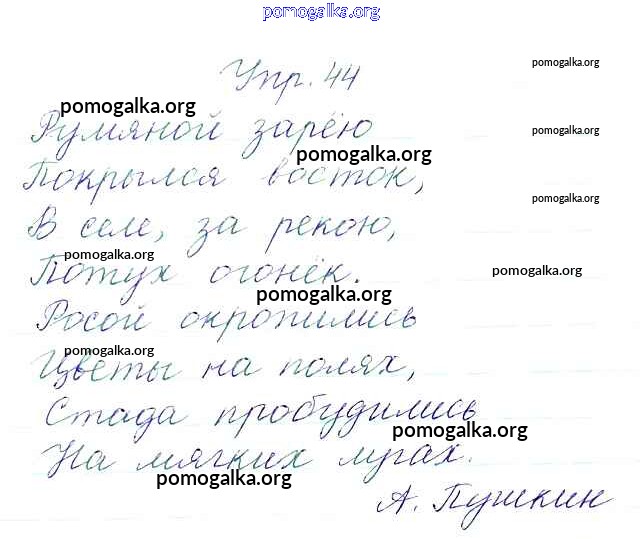 pomogalka.org
Упр. 44
pomogalka.org
pomogalka.org
Румяной зарёю
pomogalka.org
pomogalka.org
Покрылся восток,
pomogalka.org
В селе, за рекою,
pomogalka.org
pomogalka.org
Потух огонёк.
pomogalka.org
Росой окропились
pomogalka.org
Цветы на полях,
Стада пробудились
pomogalka.org
На мягких лугах.
pomogalka.org
А. Пушкин